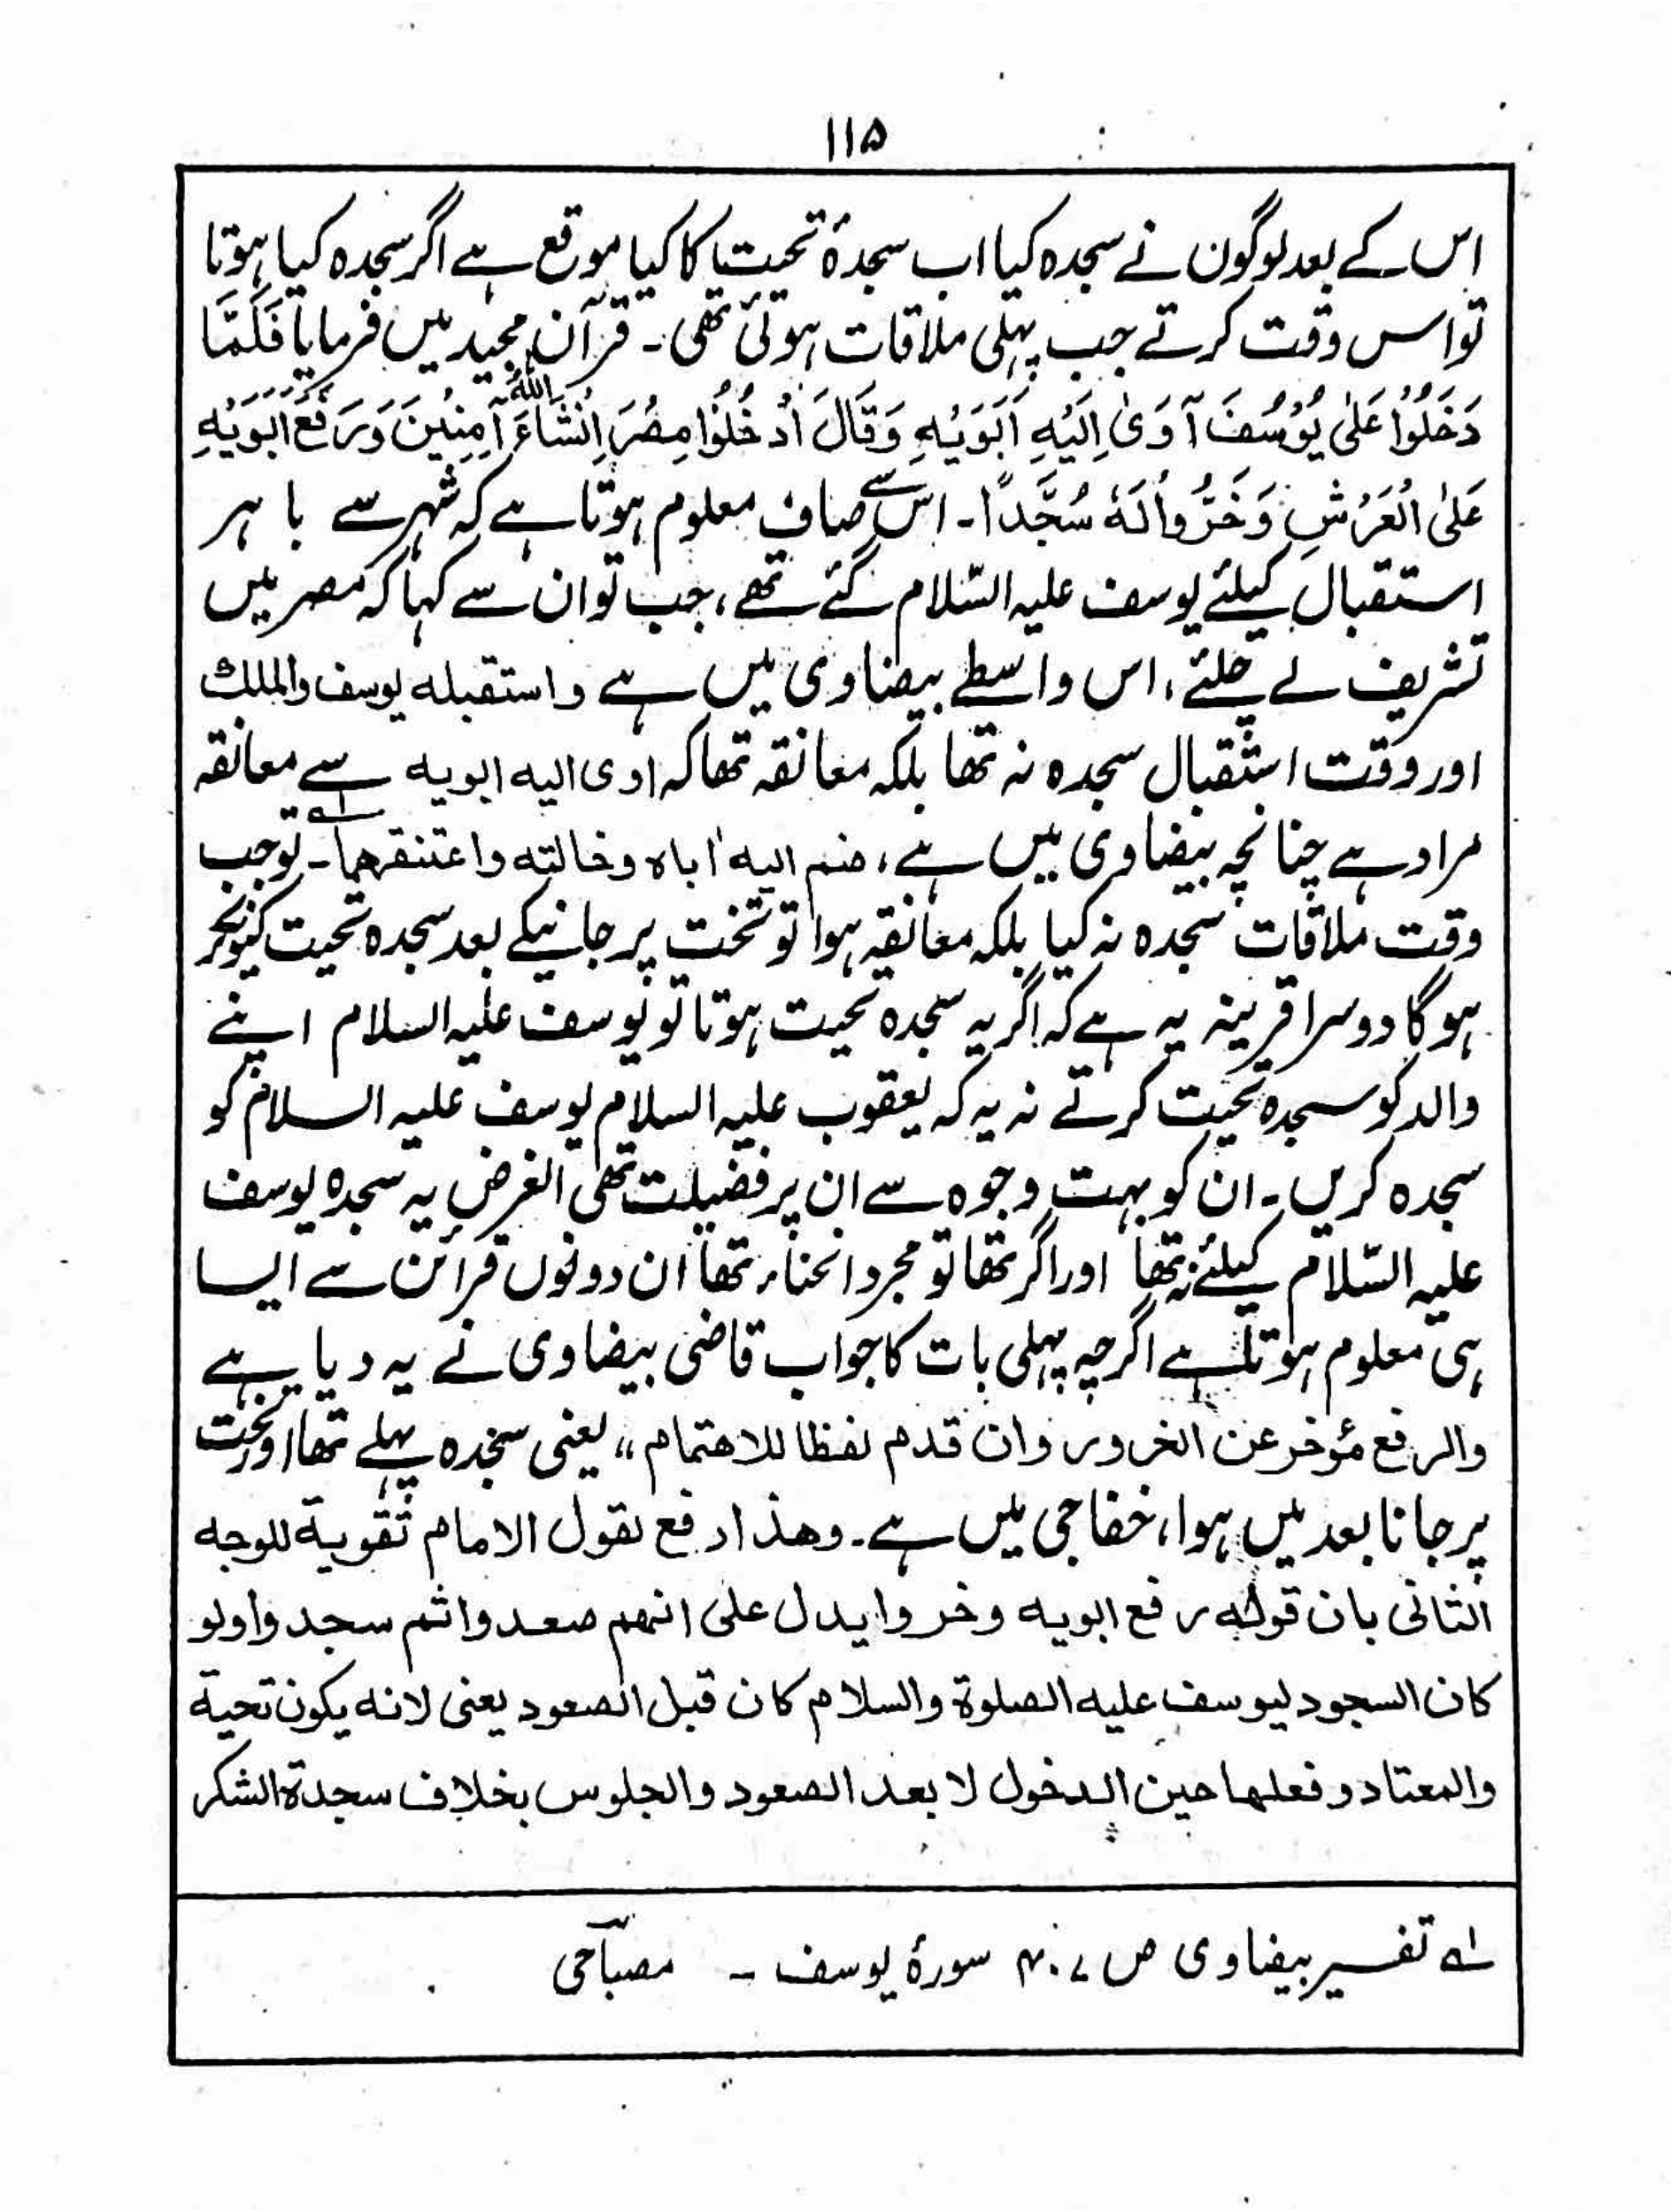 ۱۱۵
اس کے بعد لوگوں نے سجدہ کیا اب سجدۂ تحیت کا کیا موقع ہے اگر سجدہ کیا ہوتا
تو اس وقت کرتے جب پہلی ملاقات ہوئی تھی۔ قرآن مجید میں فرمایا فَلَمَّا
دَخَلُوْا عَلٰی یُوْسُفَ آوَیٰ اِلَیْہِ اَبَوَیْہِ وَقَالَ ادْخُلُوْا مِصْرَ اِنْشَاءَ اللّٰہُ آمِنِیْنَ وَرَفَعَ اَبَوَیْہِ
عَلَی الْعَرْشِ وَخَرُّوْا لَہٗ سُجَّدًا۔ اس سے صاف معلوم ہوتا ہے کہ شہر سے باہر
استقبال کیلئے یوسف علیہ السّلام گئے تھے، جب تو ان سے کہا کہ مصر میں
تشریف لے چلئے، اس واسطے بیضاوی میں ہے واستقبلہ یوسف والملک
اور وقت استقبال سجدہ نہ تھا بلکہ معانقہ تھا کہ اوی الیہ ابویہ سے معانقہ
مراد ہے چنانچہ بیضاوی میں ہے، ضم الیہ اباہ وخالتہ واعتنقہما۔ ؎۱ تو جب
وقت ملاقات سجدہ نہ کیا بلکہ معانقہ ہوا تو تخت پر جانیکے بعد سجدہ تحیت کیونکر
ہوگا دوسرا قرینہ یہ ہے کہ اگر یہ سجدہ تحیت ہوتا تو یوسف علیہ السلام اپنے
والد کو سجدہ تحیت کرتے نہ یہ کہ یعقوب علیہ السلام یوسف علیہ السلام کو
سجدہ کریں۔ ان کو بہت وجوہ سے ان پر فضیلت تھی الغرض یہ سجدہ یوسف
علیہ السّلام کیلئے نہ تھا اور اگر تھا تو مجرد انحناء تھا ان دونوں قرائن سے ایسا
ہی معلوم ہوتا ہے اگرچہ پہلی بات کا جواب قاضی بیضاوی نے یہ دیا ہے
والرفع مؤخر عن الخرور وان قدم لفظا للاھتمام،، یعنی سجدہ پہلے تھا اور تخت
پر جانا بعد میں ہوا، خفاجی میں ہے۔ وھذا دفع لقول الامام تقویة للوجہ
الثانی بان قولہ رفع ابویہ وخروا یدل علی انھم صعدوا ثم سجدوا ولو
کان السجود لیوسف علیہ الصلوة والسلام کان قبل الصعود یعنی لانہ یکون تحیة
والمعتاد و فعلھا حین الدخول لا بعد الصعود والجلوس بخلاف سجدة الشکر
؎۱ تفسیر بیضاوی ص ۴۰۷ سورۂ یوسف ۔ مصباحی